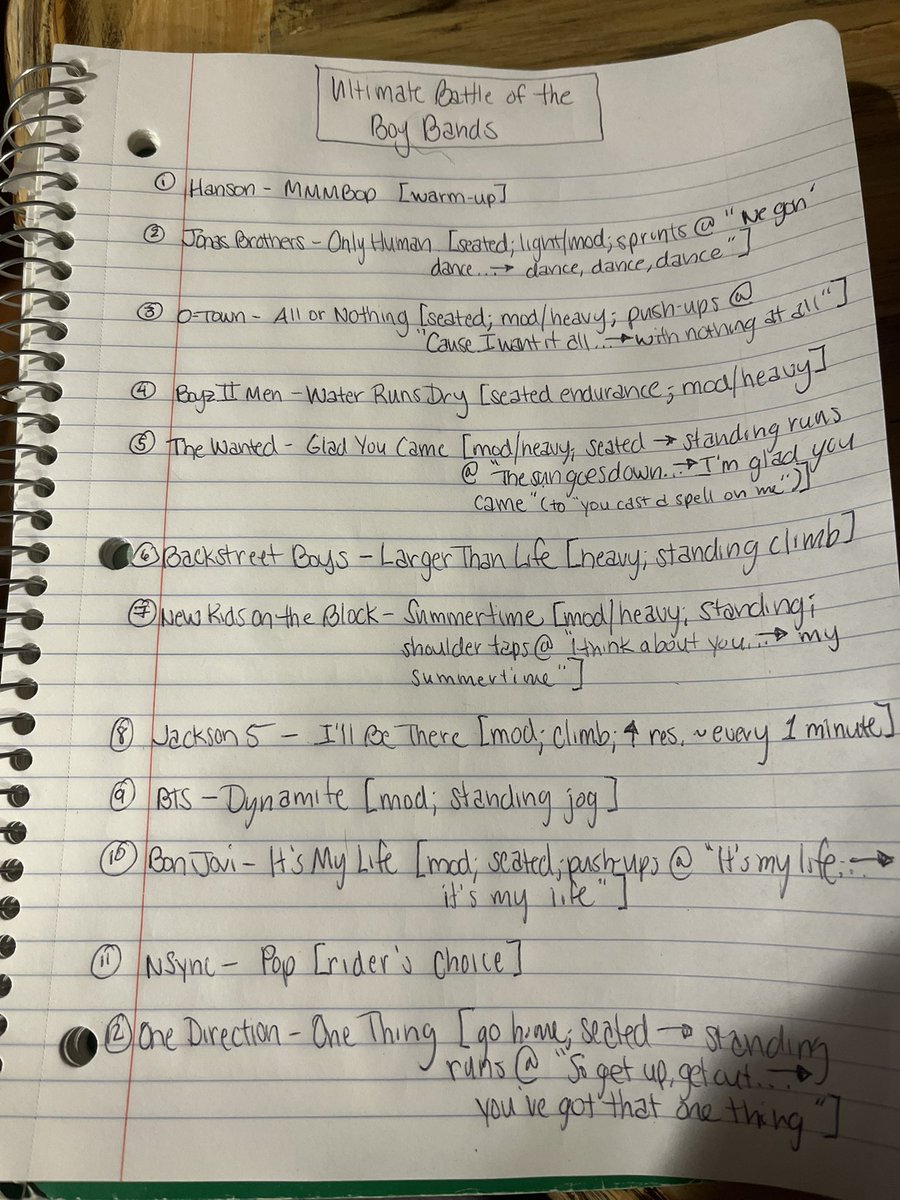 Ultimate Battle of the
Boy Bands
① Hanson - MMMBop [warm-up]
② Jonas Brothers - Only Human [seated; light/mod; sprints @ "We gon'
dance...→ dance, dance, dance"]
③ O-Town - All or Nothing [seated; mod/heavy; push-ups @
"Cause I want it all...→with nothing at all"]
④ Boyz II Men - Water Runs Dry [seated endurance; mod/heavy]
⑤ The Wanted - Glad You Came [mod/heavy; seated → standing runs
@ "The sun goes down...→I'm glad you
came" (to "you cast a spell on me")]
⑥ Backstreet Boys - Larger Than Life [heavy; standing climb]
⑦ New Kids on the Block - Summertime [mod/heavy; standing;
shoulder taps @ "i think about you...→ my
summertime"]
⑧ Jackson 5 - I'll Be There [mod; climb; ↑ res. ~every 1 minute]
⑨ BTS - Dynamite [mod; standing jog]
⑩ Bon Jovi - It's My Life [mod; seated; push-ups @ "It's my life...→
it's my life"]
⑪ NSync - Pop [rider's choice]
⑫ One Direction - One Thing [go home; seated → standing
runs @ "So get up, get out...→
you've got that one thing"]